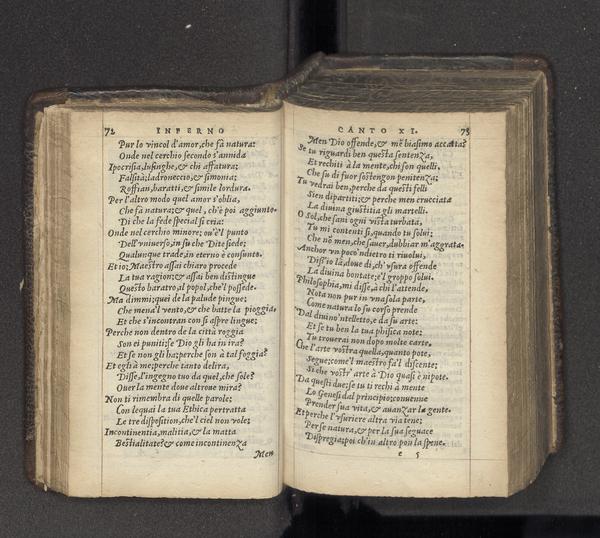 72 INFERNO
Pur lo vincol d'amor, che fà natura:
Onde nel cerchio secondo s'annida
Ipocrisia, lusinghe, & chi affatura:
Falsità; ladroneccio, & simonia;
Roffian, baratti, & simile lordura.
Per l'altro modo quel amor s'oblia,
Che fà natura; & quel, ch'è poi aggiunto.
Di che la fede spetial si cria:
Onde nel cerchio minore; ou'è'l punto
Dell'vniuerso, in su che Dite siede;
Qualunque trade, in eterno è consunto.
Et io; Maestro assai chiaro procede
La tua ragion; & assai ben distingue
Questo baratro, al popol, che'l possede.
Ma dimmi; quei de la palude pingue;
Che mena'l vento, & che batte la pioggia,
Et che s'incontran con sì aspre lingue;
Perche non dentro de la città roggia
Son ei puniti; se Dio gli ha in ira?
Et se non gli ha; perche son à tal foggia?
Et egli à me; perche tanto delira,
Disse, l'ingegno tuo da quel, che sole?
Ouer la mente doue altroue mira?
Non ti rimembra di quelle parole;
Con lequai la tua Ethica pertratta
Le tre disposition, che'l ciel non vole;
Incontinentia, malitia, & la matta
Bestialitate? & come incontinenza
Men
CANTO XI. 73
Men Dio offende, & mẽ biasimo accatta?
Se tu riguardi ben questa sentenza,
Et rechiti à la mente, chi son quelli,
Che su di fuor sostengon penitenza;
Tu vedrai ben, perche da questi felli
Sien dipartiti; & perche men crucciata
La diuina giustitia gli martelli.
O Sol, che sani ogni vista turbata,
Tu mi contenti sì, quando tu solui;
Che nõ men, che sauer, dubbiar m'aggrata.
Anchor vn poco'ndietro ti riuolui,
Diss'io là, doue di, ch'vsura offende
La diuina bontate; e'l groppo solui.
Philosophia, mi disse, à chi l'attende,
Nota non pur in vna sola parte,
Come natura lo su corso prende
Dal diuino'ntelletto, e da su arte:
Et se tu ben la tua phisica note;
Tu trouerai non dopo molte carte,
Che l'arte vostra quella, quanto pote,
Segue; come'l maestro fa'l discente;
Sì che vostr'arte à Dio quasi è nipote.
Da questi due; se tu ti rechi à mente
Lo Genesi dal principio; conuenne
Prender sua vita, & auanzar la gente.
Et perche l'vsuriere altra via tene;
Per se natura, & per la sua seguace
Dispregia; poi ch'in altro pon la spene.
e 5